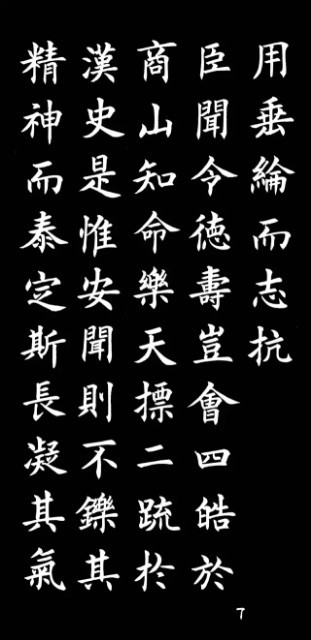 用垂綸而志抗
臣聞令德壽豈會四皓於
商山知命樂天摽二疏於
漢史是惟安聞則不鑠其
精神而泰定斯長凝其氣
7